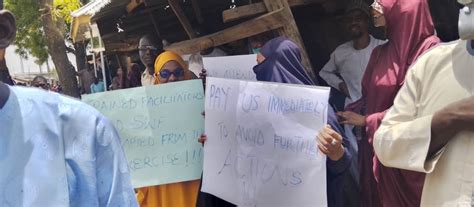 TRAINED FACILITATORS
SWF
FROM
EXERCISE !!!
PAY US IMMEDIATELY
TO AVOID FURTHER
ACTIONS